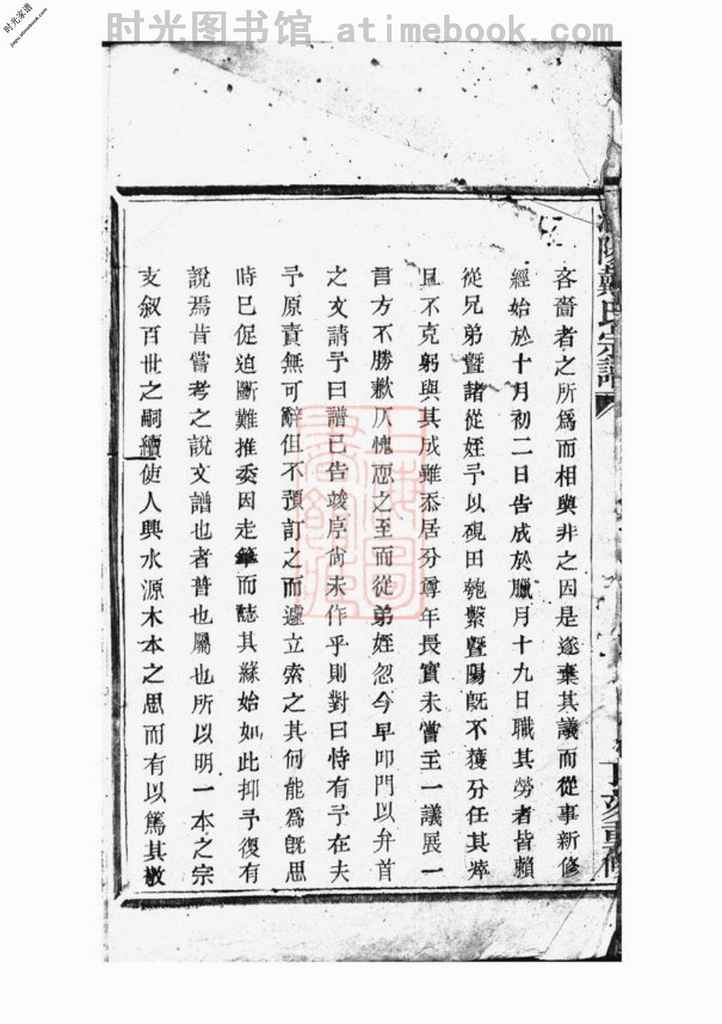 时光图书馆 atimebook.com
时光家谱
jiapu.atimebook.com
戴氏宗譜
重修
吝嗇者之所爲而相與非之因是遂棄其議而從事新修
經始於十月初二日告成於臘月十九日職其勞者皆賴
從兄弟暨諸從姪予以硯田匏繫暨陽旣不獲分任其瘁
且不克躬與其成雖忝居分尊年長實未嘗主一議展一
言方不勝歉仄愧恧之至而從弟姪忽今早叩門以弁首
之文請予曰譜已告竣序尙未作乎則對曰恃有予在夫
予原責無可辭但不預訂之而遽立索之其何能爲旣思
時已促迫斷難推委因走筆而誌其緣始如此抑予復有
說焉昔嘗考之說文譜也者普也屬也所以明一本之宗
支叙百世之嗣續使人興水源木本之思而有以篤其敬